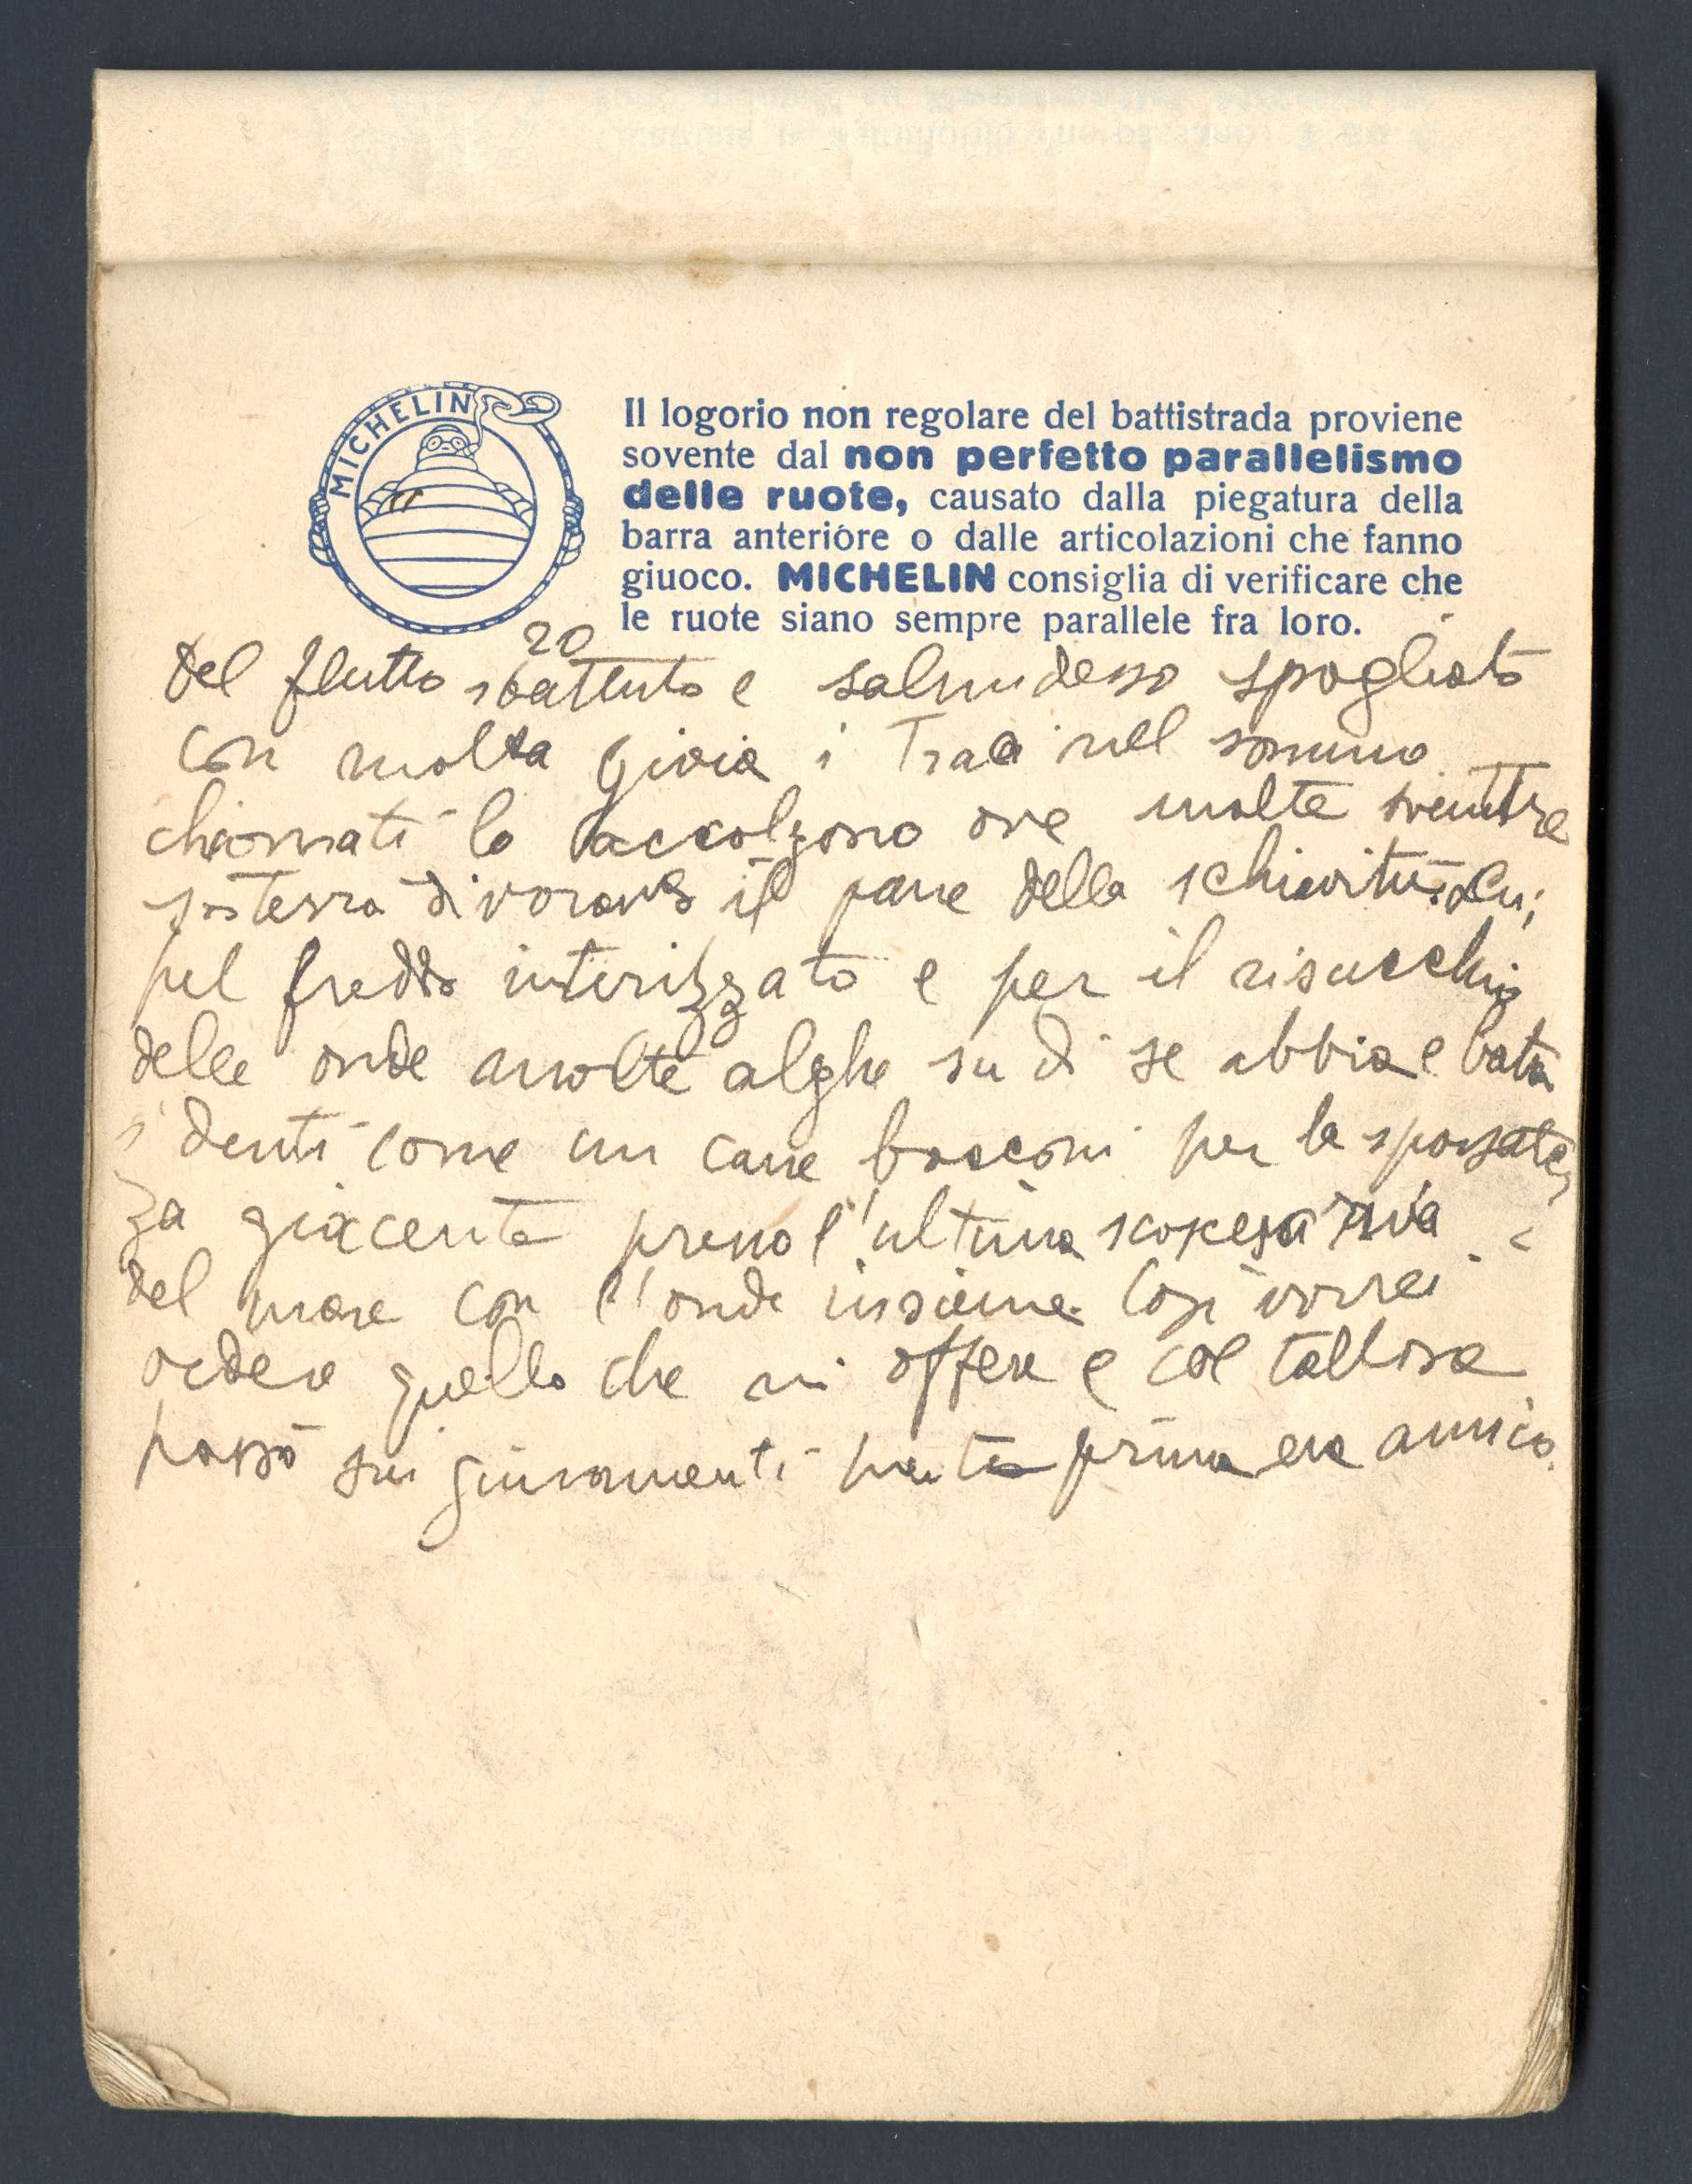 MICHELIN
Il logorio non regolare del battistrada proviene
sovente dal non perfetto parallelismo
delle ruote, causato dalla piegatura della
barra anteriore o dalle articolazioni che fanno
giuoco. MICHELIN consiglia di verificare che
le ruote siano sempre parallele fra loro.
20
del flutto sbattuto e salmidesso spogliato
con molta gioia i Traci nel sommo
chiomati lo accolgono ove molte sventure
sosterrà divorando il pane della schiavitù; lui
pel freddo intirizzato e per il risucchio
delle onde molte alghe su di se abbia e batta
i denti come un cane bocconi per la spossatez
za giacente presso l'ultima scoscesa riva
del mare con l'onda insieme. Così vorrei
vedere quello che mi offese e col tallone
passò sui giuramenti prima era amico.